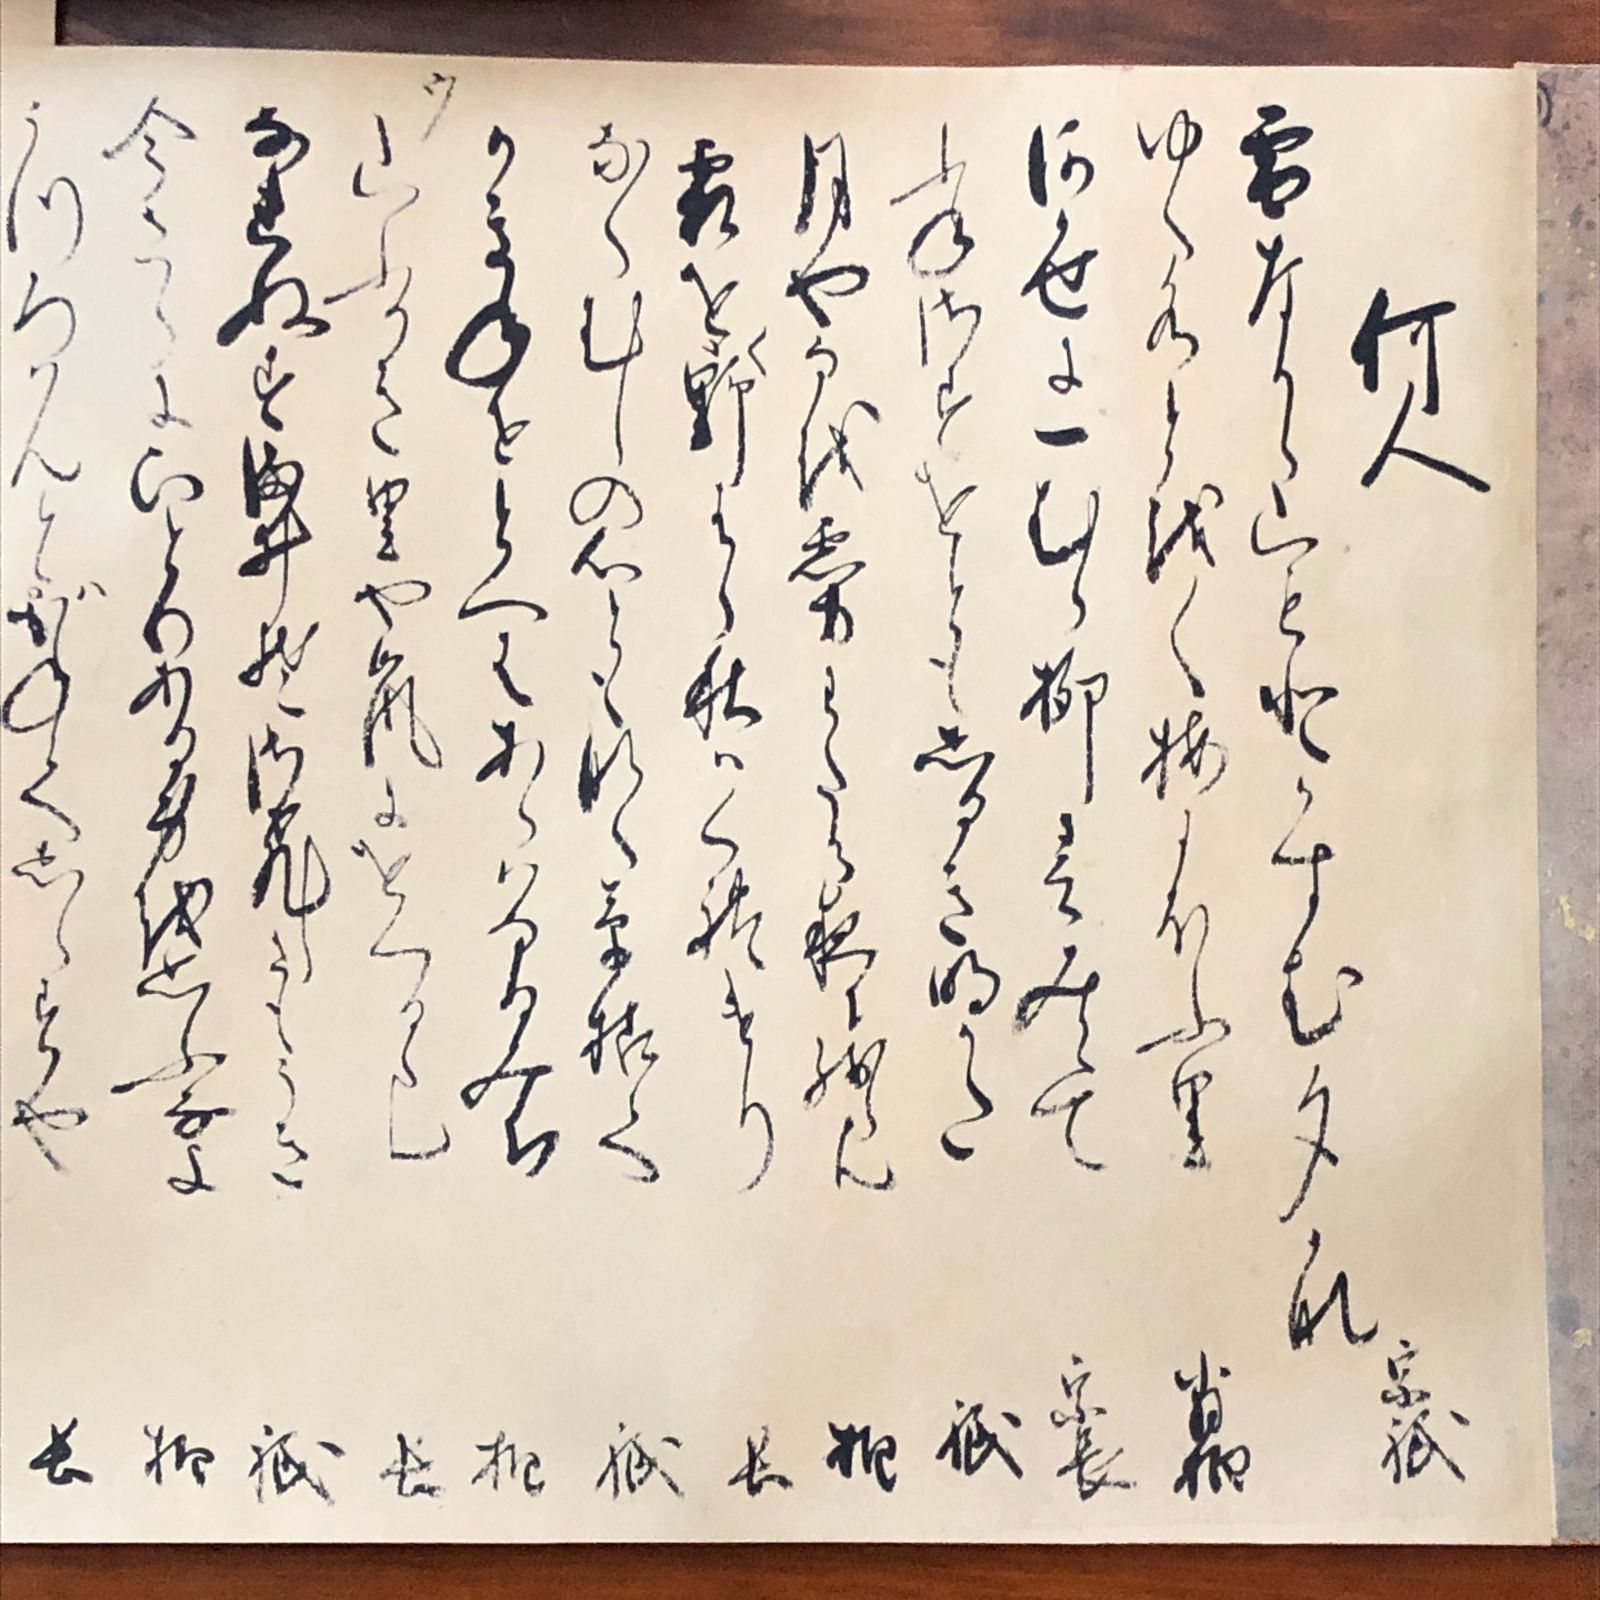 何人
雪なから山もとかすむ夕かな 宗祇
ゆく水とをく梅にほふ里 肖柏
河かせに一むら柳春みえて 宗長
舟さすをともしるき明かた 祇
月やなを霧わたる夜に残らん 柏
霜をく野はら秋はくれけり 長
なくむしの心ともなく草枯て 祇
かきねをとへはあらはなるみち 柏
山ふかき里や嵐にをくるらむ 長
なれぬすまゐそさひしさもうき 祇
今さらにひとりある身を思ふなよ 柏
うつろはんとはかねてしらすや 長